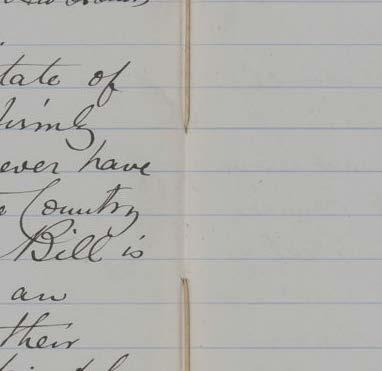 tate of
firmly
ever have
Country
Bill is
an
their